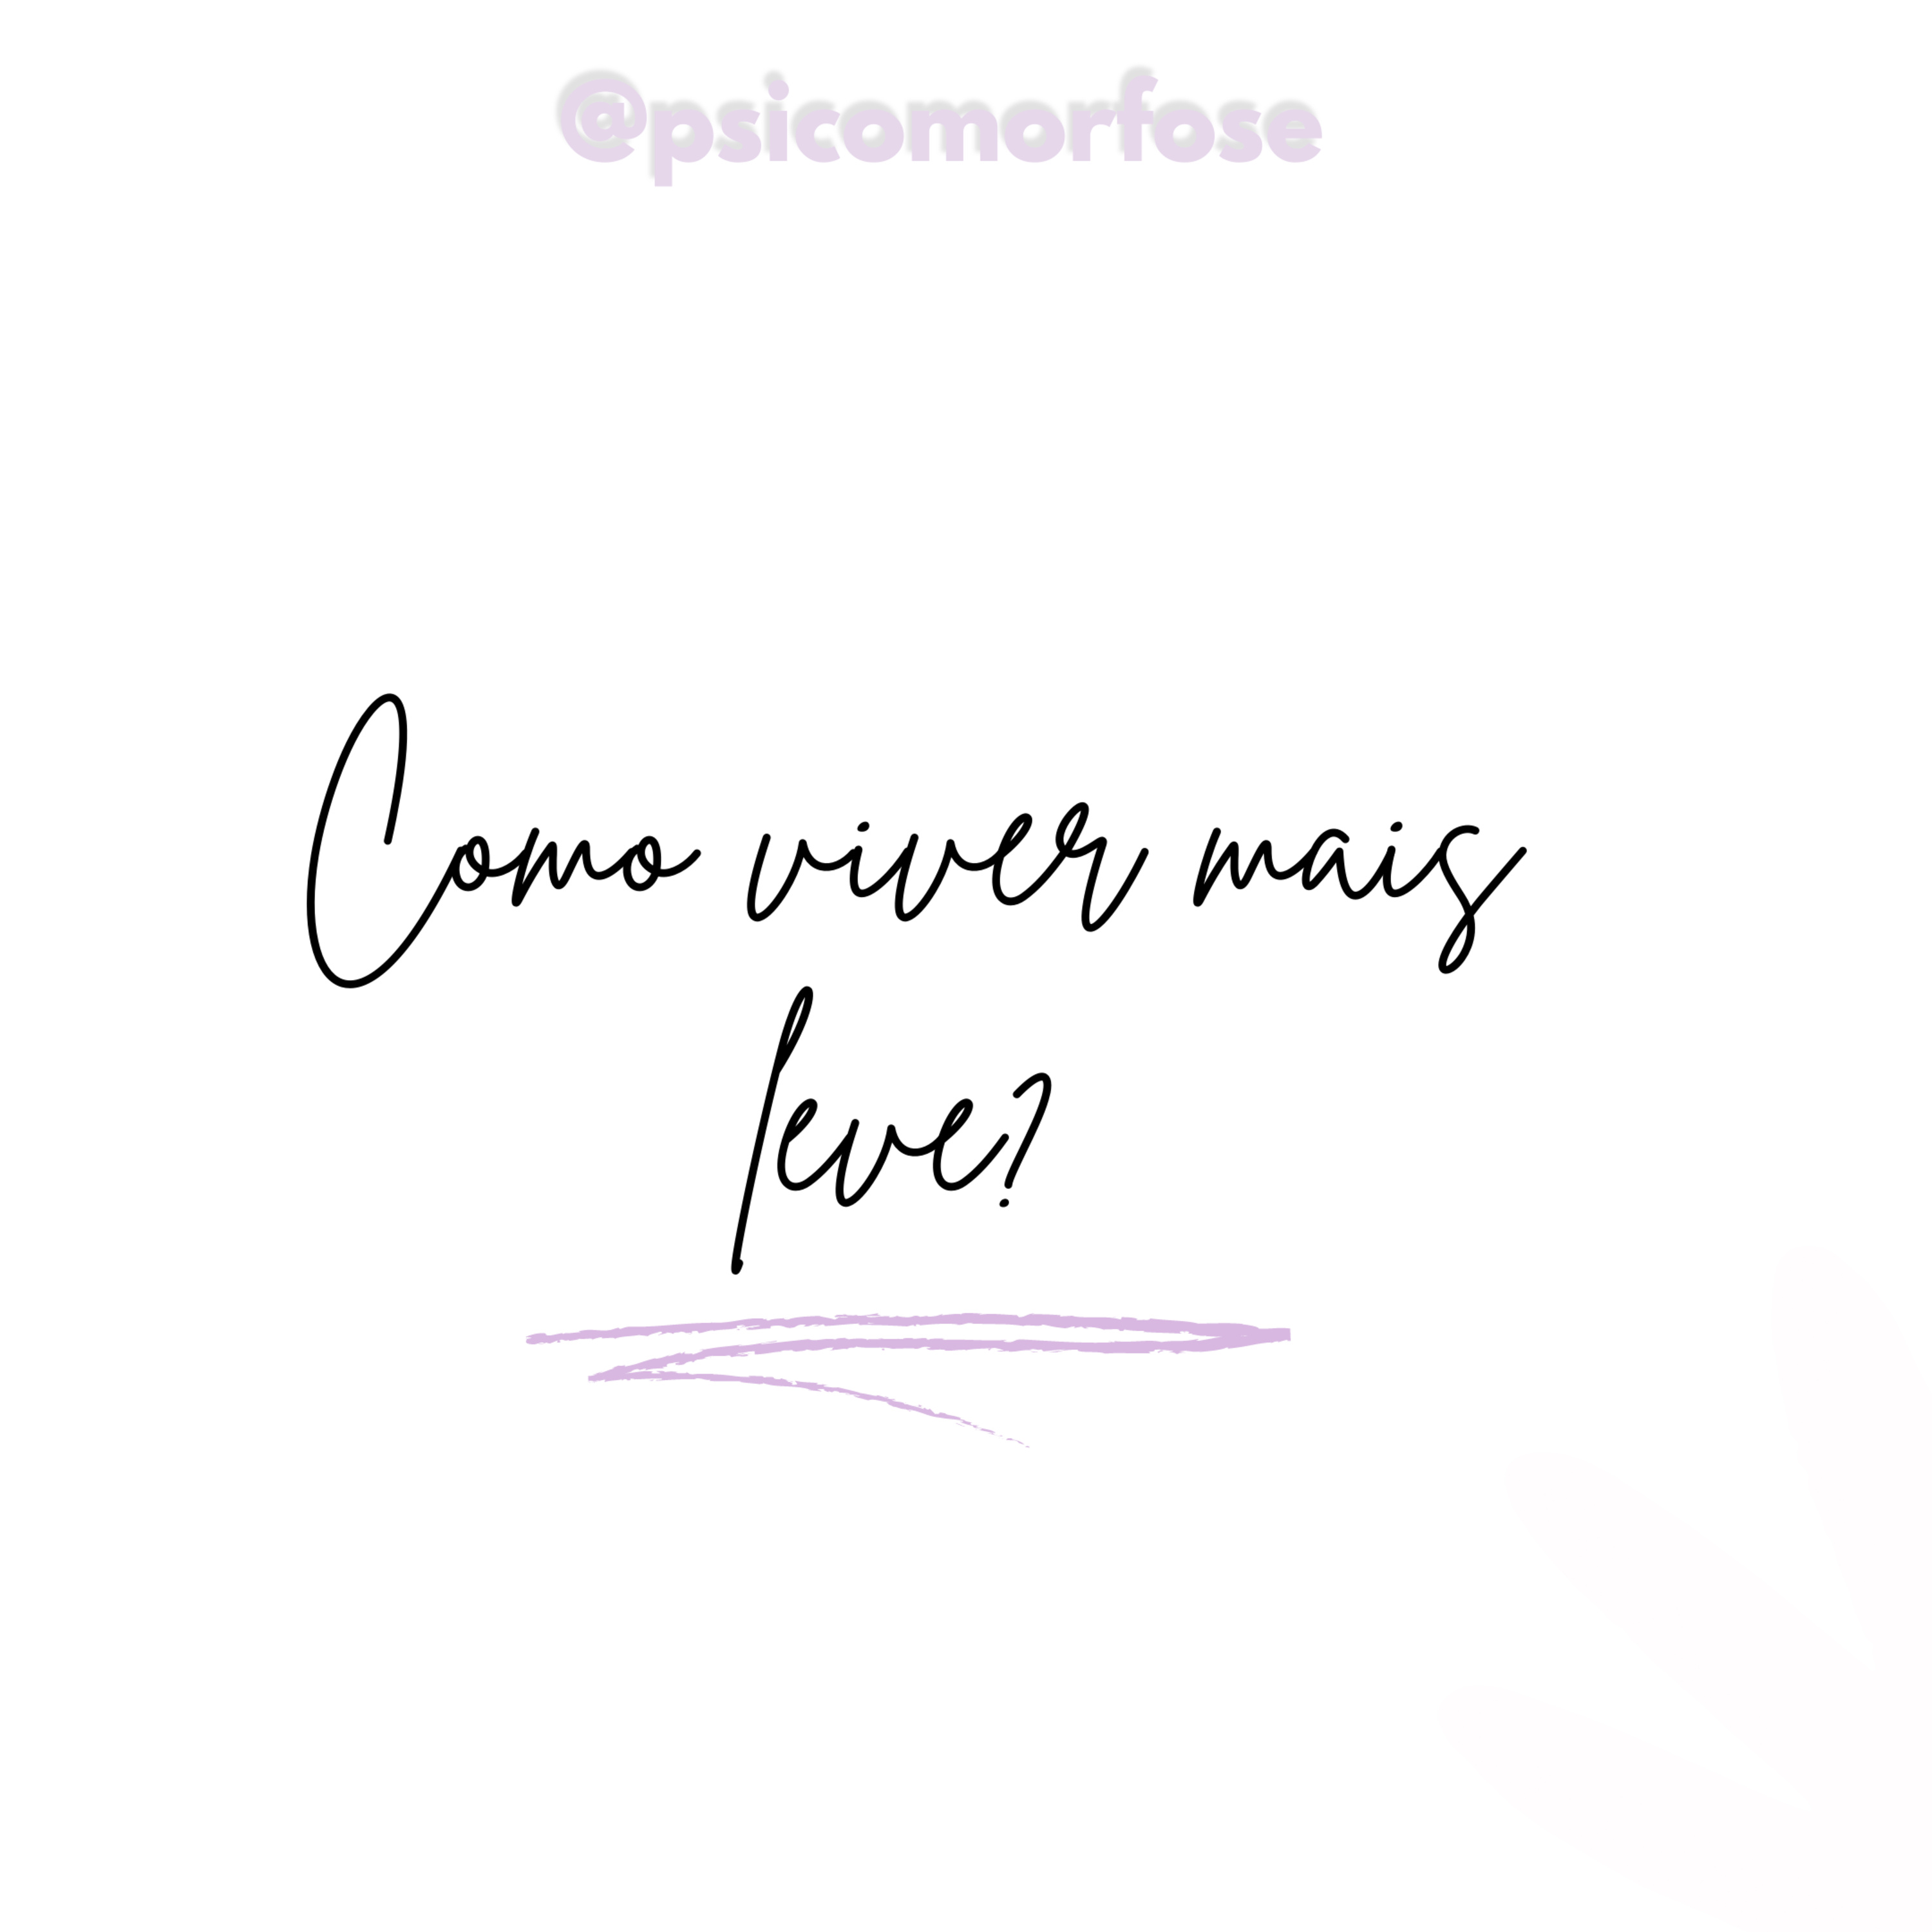 @psicomorfose
Como viver mais
leve?